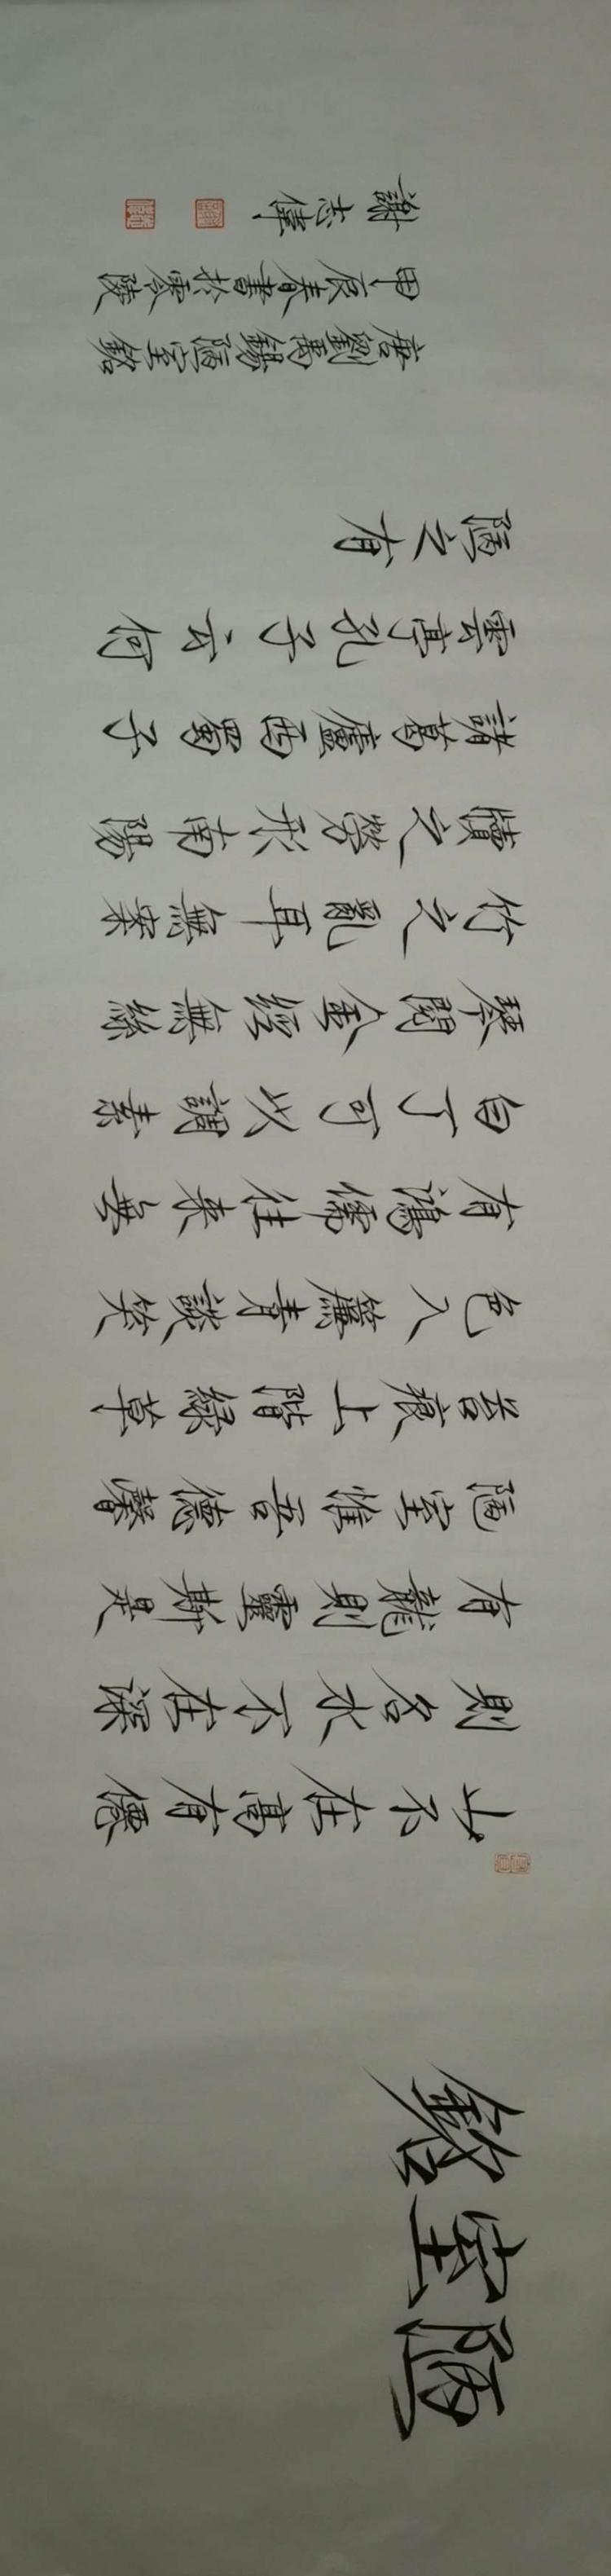 陋室銘
山不在高有僊
則名水不在深
有龍則靈斯是
陋室惟吾德馨
苔痕上階綠草
色入簾青談笑
有鴻儒往來無
白丁可以調素
琴閱金經無絲
竹之亂耳無案
牘之勞形南陽
諸葛廬西蜀子
雲亭孔子云何
陋之有
唐劉禹錫陋室銘
甲辰春書於零陵
謝志偉